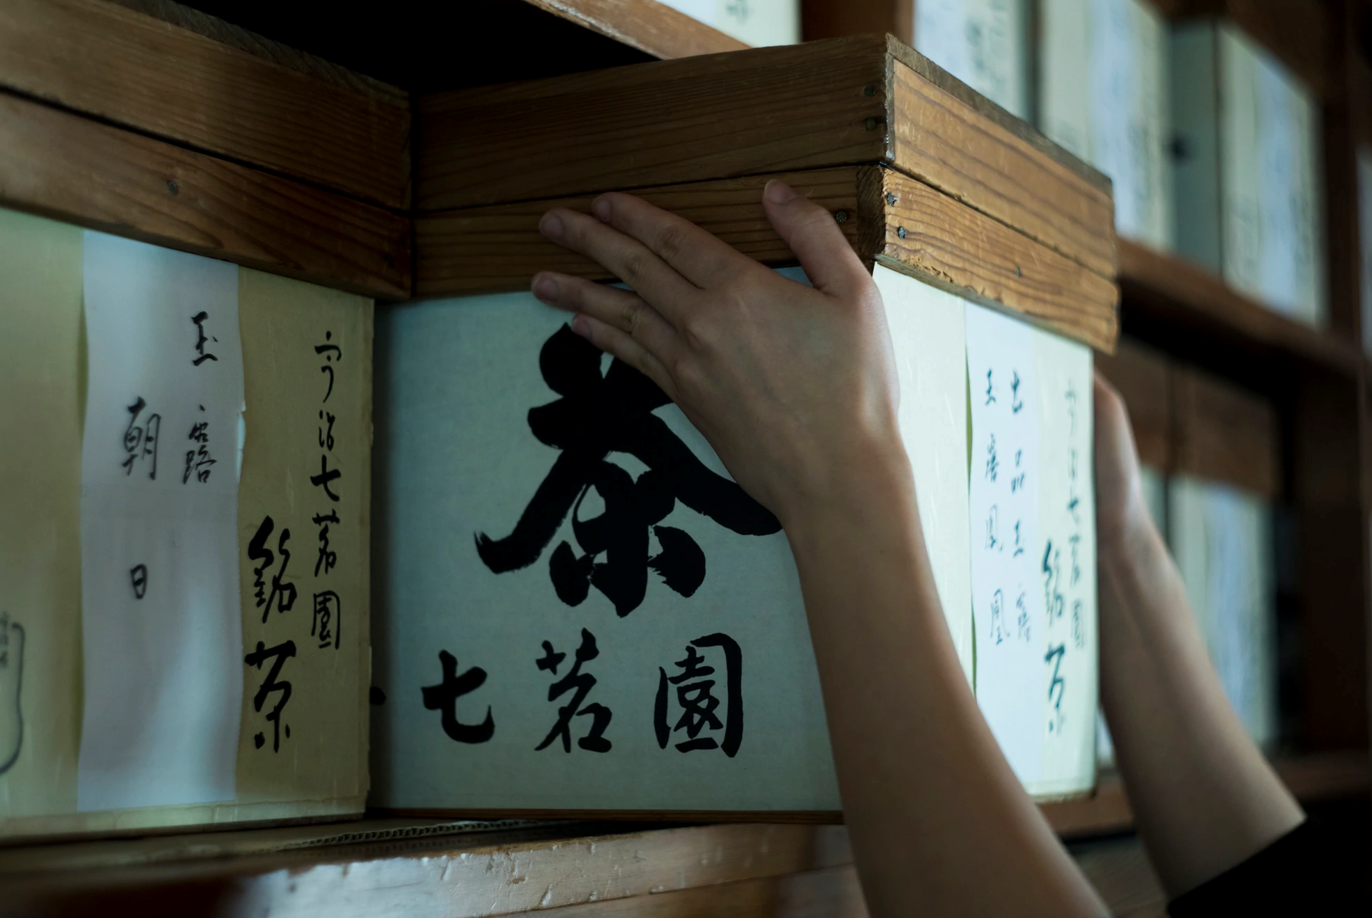 宇治七茗園
銘茶
玉露
朝日
茶
七茗園
出品玉露
玉露鳳凰
宇治七茗園
銘茶